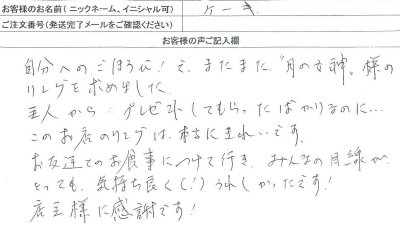 お客様のお名前(ニックネーム、イニシャル可)
ケーキ
ご注文番号(発送完了メールをご確認ください)
お客様の声ご記入欄
自分へのごほうび!で、またまた“月の女神”様の
リングを求めました。
主人から プレゼントしてもらったばかりなのに…
このお店のリングは、本当にきれいです。
お友達とのお食事につけて行き、みんなの目線が、
とっても、気持ち良く(!)うれしかったです!
店主様に感謝です!